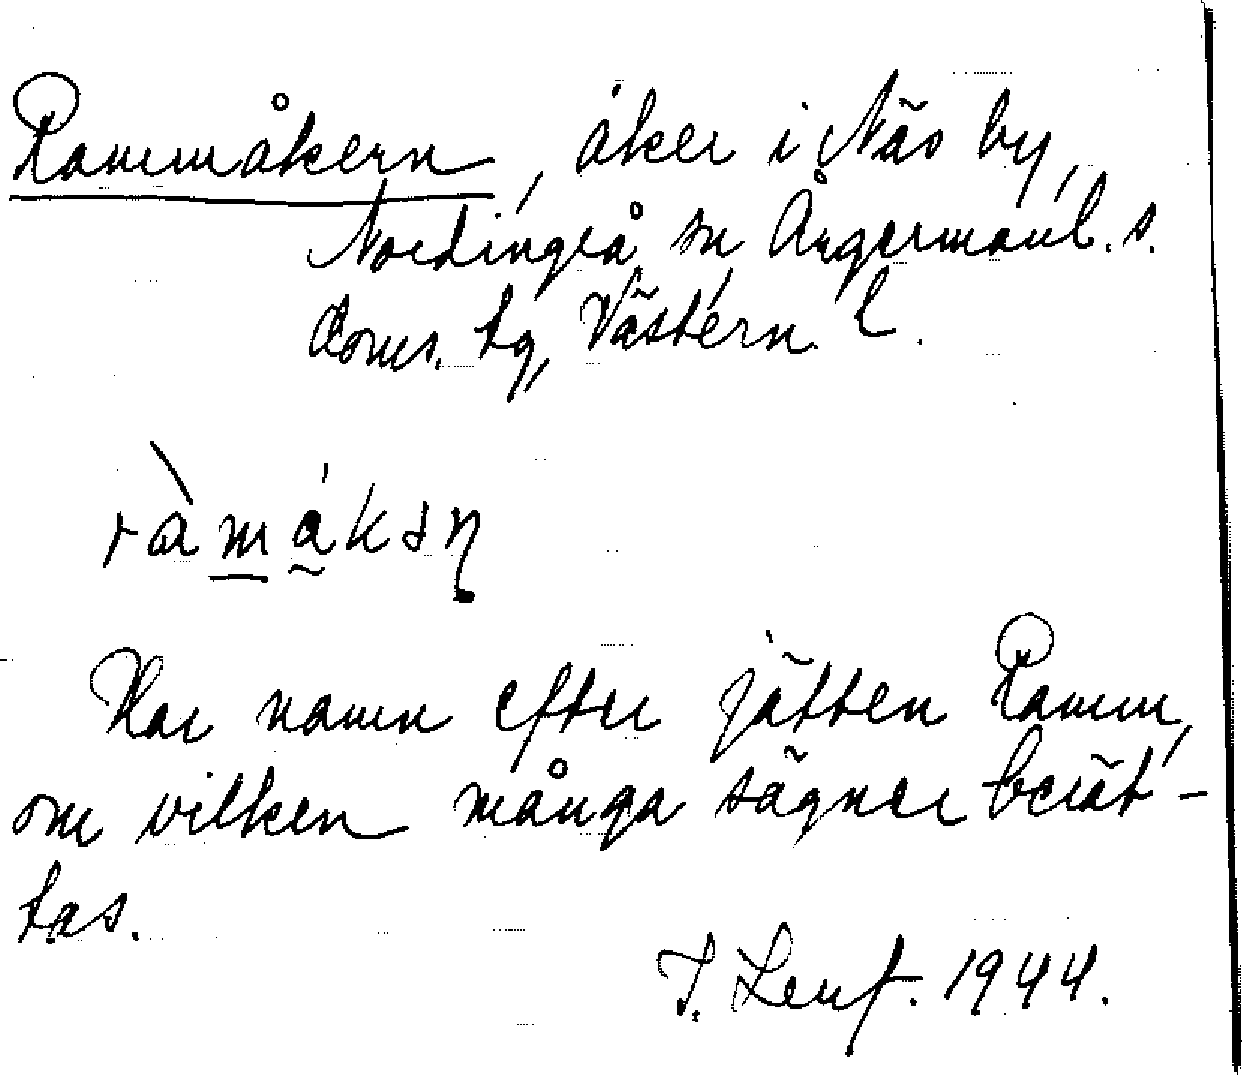 Rammåkern, åker i Näs by,
Nordingrå sn Ångermanl. s.
doms. tg, Västern. l.
ràmákən
Har namn efter jätten Ramm,
om vilken många sägner berät-
tas.
T. Lenf. 1944.